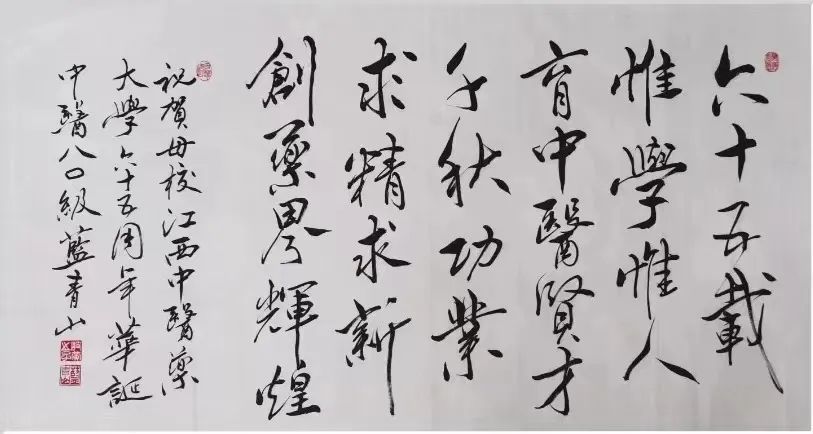 六十五載
惟學惟人
育中醫賢才
千秋功業
求精求新
創藥界輝煌
祝賀母校江西中醫藥
大學六十五周年華誕
中醫八〇級藍青山